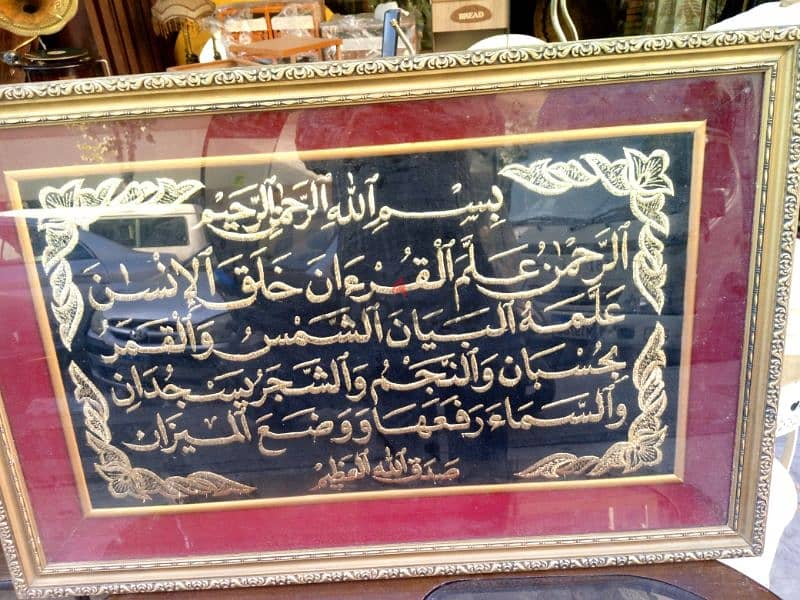 BREAD
بِسْمِ ٱللهِ ٱلرَّحْمٰنِ ٱلرَّحِيْمِ
ٱلرَّحْمٰنُ عَلَّمَ ٱلْقُرْءَانَ خَلَقَ ٱلْإِنْسٰنَ
عَلَّمَهُ ٱلْبَيَانَ ٱلشَّمْسُ وَٱلْقَمَرُ
بِحُسْبَانٍ وَٱلنَّجْمُ وَٱلشَّجَرُ يَسْجُدَانِ
وَٱلسَّمَاءَ رَفَعَهَا وَوَضَعَ ٱلْمِيْزَانَ
صَدَقَ ٱللهُ ٱلْعَظِيْمُ